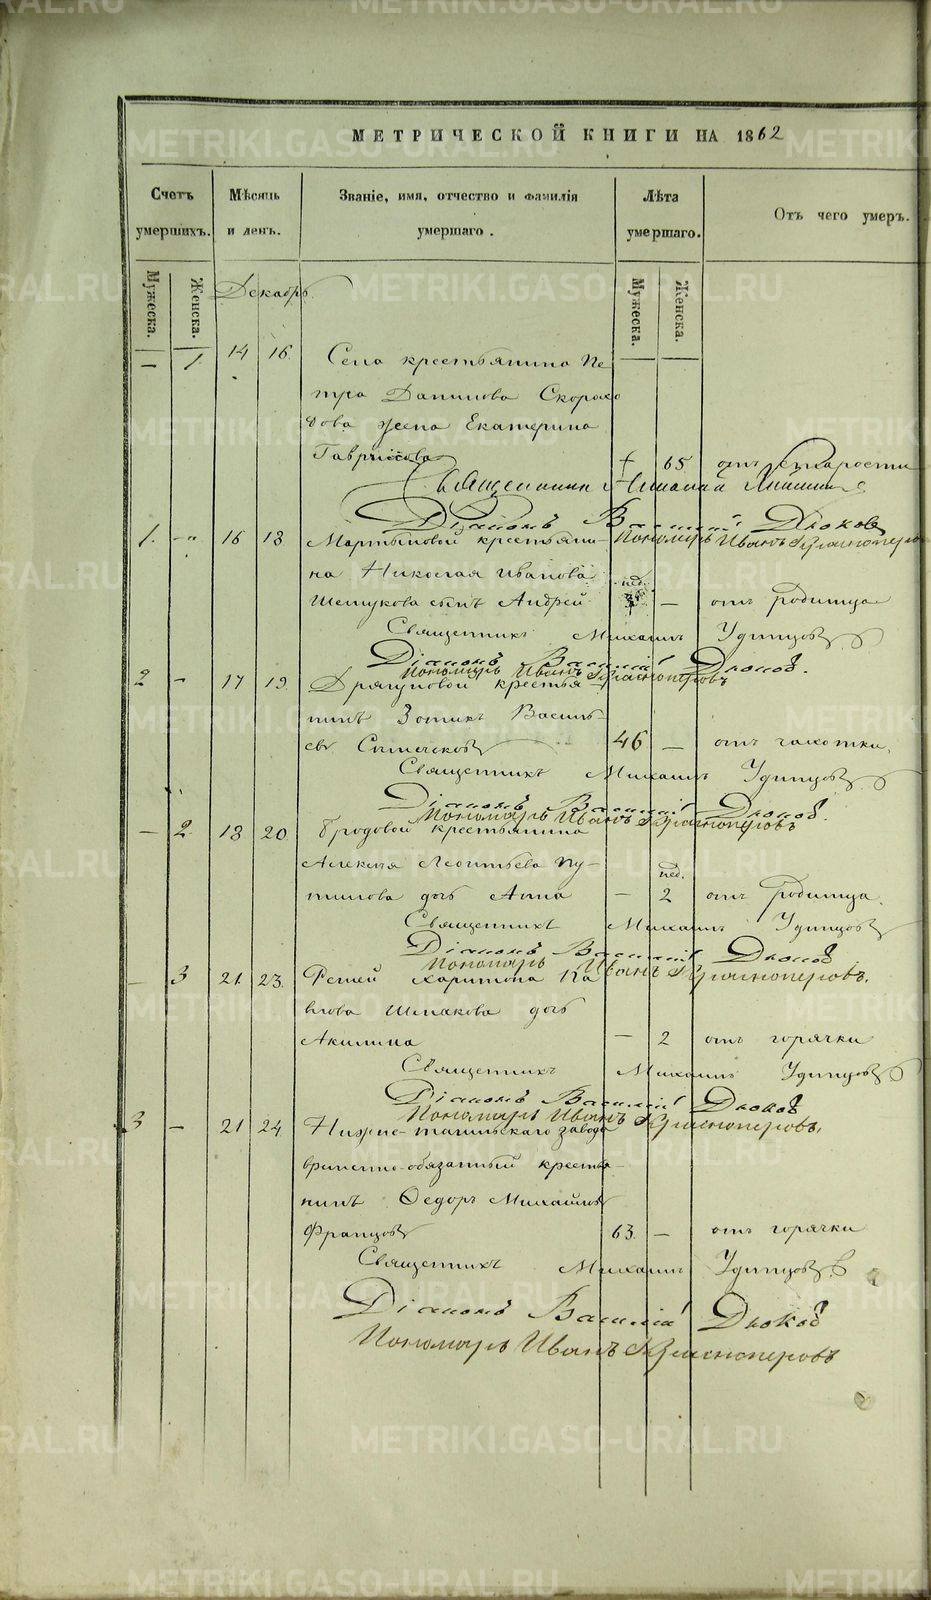 МЕТРИЧЕСКОЙ КНИГИ НА 1862
Счетъ умершихъ.
Мѣсяцъ и день.
Званіе, имя, отчество и фамилія умершаго.
Лѣта умершаго.
Отъ чего умеръ.
Мужеска. Женска.
Мужеска. Женска.
Декабрь
— 1. 14 16. Села крестьянина Пе
тра Данилова Скорохо
дова жена Екатерина
Гаврилова + 65 отъ старости
Священникъ
Діаконъ Василій Дюковъ
Пономарь Иванъ Красноперовъ
1. — 16 18 Мартыновой крестьяни-
на Николая Иванова
нед.
сынъ Андрей — отъ родимца
Священникъ Михаилъ Удинцовъ
Діаконъ Василій Дюковъ.
Пономарь Иванъ Красноперовъ
2 — 17 19. Драгуновой крестья-
нинъ Зотикъ Василь-
евъ 46 — отъ чахотки.
Священникъ Михаилъ Удинцовъ
Діаконъ Василій Дюковъ.
Пономарь Иванъ Красноперовъ
— 2. 18 20. Бродовой крестьянина
Алексѣя Леонтьева Пу-
нед.
тилова дочь Анна — 2 отъ родимца.
Священникъ Михаилъ Удинцовъ
Діаконъ Василій Дюковъ
Пономарь Иванъ Красноперовъ.
— 3 21. 23. Харитона Ка
Шмакова дочь
Акилина — 2 отъ горячки
Священникъ Михаилъ Удинцовъ
Діаконъ Василій Дюковъ
Пономарь Иванъ Красноперовъ.
3 — 21 24 Нижне-тагильскаго завода
временно-обязанный кресть-
нинъ Ѳедоръ Михайловъ
Францовъ 63. — отъ горячки
Священникъ Михаилъ Удинцовъ
Діаконъ Василій Дюковъ
Пономарь Иванъ Красноперовъ
METRIKI.GASO-URAL.RU